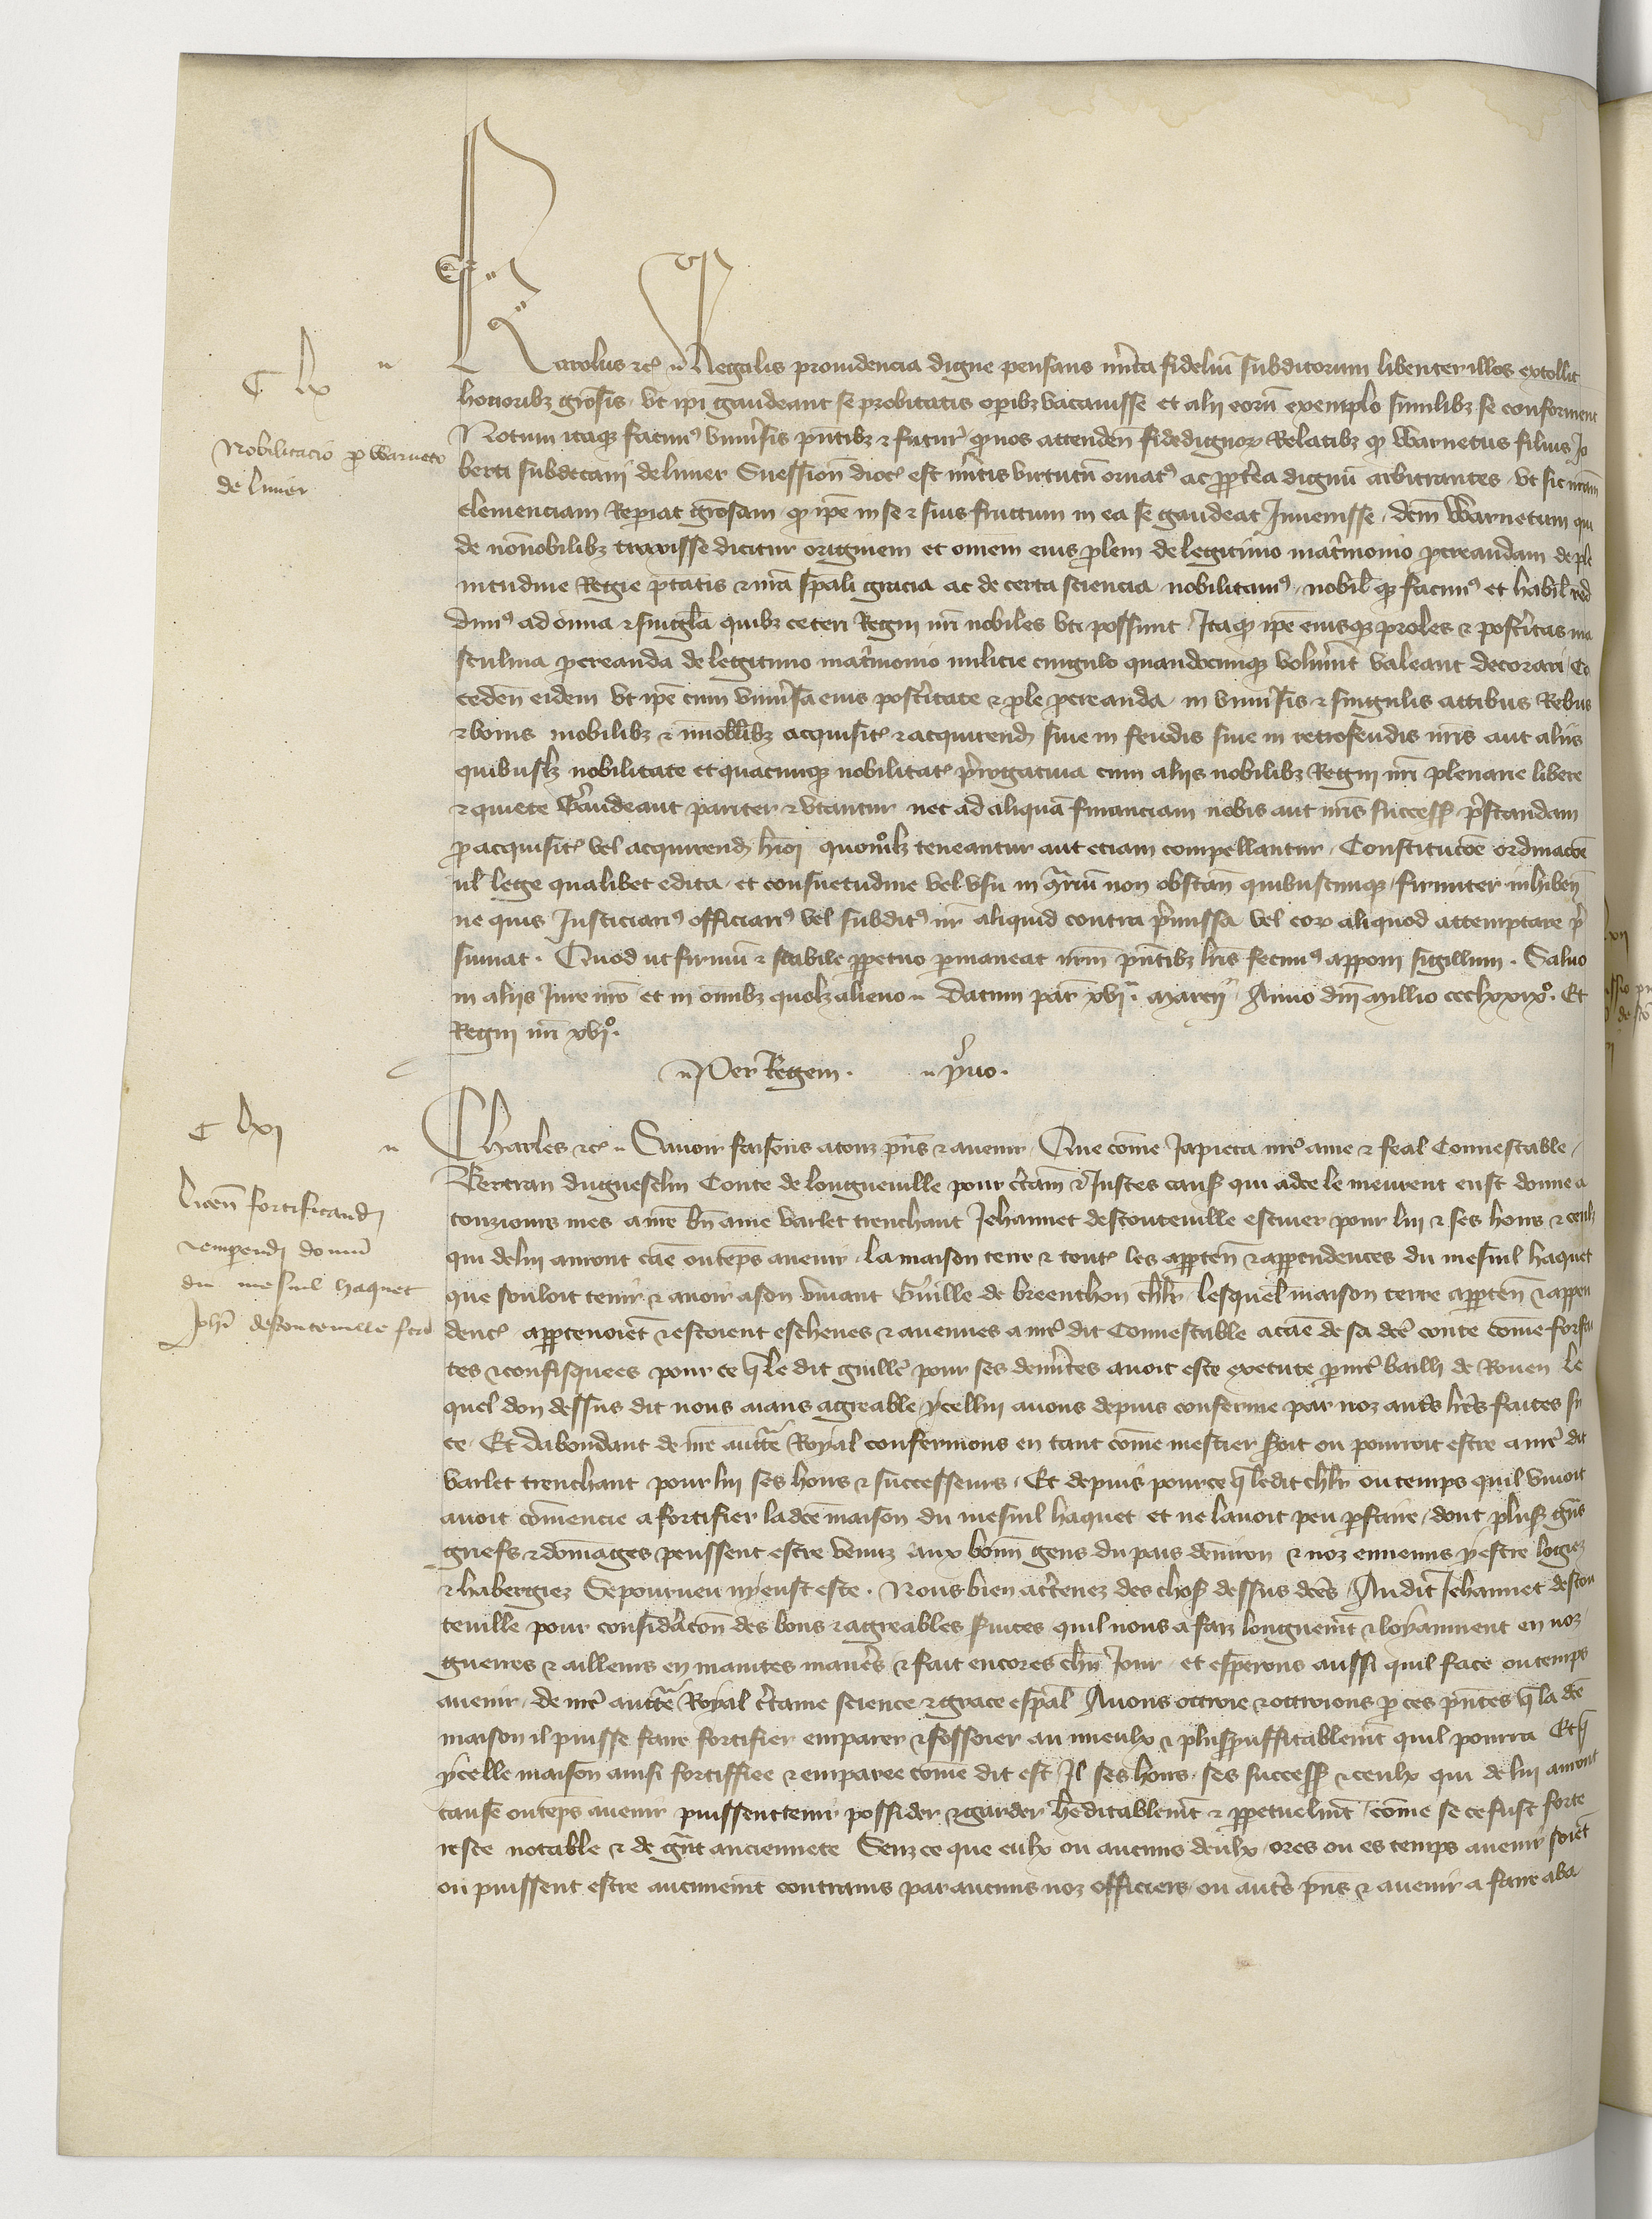 C lx
Nobilitacio p Warneto
de limer
Karolus etc. Regalis prouidencia digne pensans merita fideliu subditorum libenter illos extollit
honoribz grosis vt ipi gaudeant se probitatis opibz vacauisse et alij eoru exemplo similibz se conforment
Notum itaqz facim9 vniusis pntibz & futur q nos attenden fidedignor Relatibz q Warnetus filius Jo
berti subdecani de limer Suession dioc est mitis virtutu ornat9 ac pptea dignu arbitrantes vt sic nram
clemenciam Repiat grosam q ipe in se & suis fructum in ea se gaudeat Inuenisse dcm Warnetum qui
de nonobilibz traxisse dicitur originem et omem eius plem de legitimo matrimonio pcreandam de ple
nitudine Regie ptatis & nra spali gracia ac de certa sciencia nobilitam9 nobil qz facim9 et habil red
dim9 ad omia & singla quibz ceteri Regni nri nobiles vti possunt Itaqz ipe eiusqz proles & postitas ma
sculina pcreanda de legitimo matrimonio milicie cingulo quandocunqz voluint valeant decorari Co
ceden eidem vt ipe cum vniusa eius postitate & ple pcreanda in vniusis & singulis actibus Rebus
& bonis mobilibz & imobilibz acquisit & acquirend siue in feudis siue in retrofeudis nris aut aliis
quibuslz nobilitate et quacunqz nobilitat prerogatiua cum aliis nobilibz Regni nri plenarie libere
& quiete Gaudeant pariter & vtantur nec ad aliqua financiam nobis aut nris success prestandam
p acquisit vel acquirend hmoi quomolz teneantur aut eciam compellantur Constitucoe ordinacoe
ul lege qualibet edita et consuetudine vel vsu in griu non obstan quibuscunqz firmiter inhiben
ne quis Justiciari9 officiari9 vel subdit9 nr aliquid contra premissa vel eor aliquod attemptare pre
sumat. Quod ut firmu & stabile ppetuo pmaneat nrm pntibz lris fecim9 apponi sigillum. Saluo
in aliis Jure nro et in omibz quolz alieno Datum par xvia. marcij Anno dni millio ccclxxixo. Et
Regni nri xvio.
Per Regem. yuo.
C lxi
Licen fortificand
& emperend domu
du mesnil haquet
Johi destouteuille scu
Charles etc. Sauoir faisons a touz pns & auenir Que come Japieca nre ame & feal Connestable
Bertran duguesclin Conte de longueuille pour ctain & Justes caus qui adce le meurent eust donne a
touziours mes a nre bn ame varlet trenchant Jehannet destouteuille escuier pour lui & ses hoirs & ceulz
qui de lui auront cae ou teps auenir la maison terre & tout les apptén & appendences du mesnil haquet
que souloit tenir & auoir a son viuant Guille de breenthon chlr lesquel maison terre apptén & appen
denc apptenoiet & estoient escheues & auenues a nre dit Connestable a cae de sa dce conte come forfai
tes & confisquees pour ce q le dit guille pour ses demites auoit este execute p nre bailli de Rouen Le
quel don dessus dit nous aians agreable ycellui auons depuis conferme par noz auts lres faites sur
ce Et dabondant de nre auttte Royal confermons en tant come mestier seroit ou pourroit estre a nre dit
varlet trenchant pour lui ses hoirs & successeurs Et depuis pource q ledit chlr ou temps quil viuoit
auoit comencie a fortifier ladce maison du mesnil haquet et ne lauoit peu pfaire dont pluss gns
griefs & domages peussent estre venuz aux bonn gens du pais denuiron & noz ennemis y estre logiez
& habergiez Se pourueu ny eust este. Nous bien actenez des chos dessus dces Audit Jehannet destou
teuille pour considacon des bons & agreables suices quil nous a faiz longuemt & loyaument en noz
guerres & ailleurs en maintes manies & fait encores chun Jour et esperons aussi quil face ou temps
auenir de nre auttte Royal ctaine science & grace espal Auons ottroie & ottroions p ces pntes q la dce
maison il puisse faire fortifier emparer & fossoier au mieulx & plus pruffitablemt quil pourra Et q
ycelle maison ainsi fortiffiee & emparee come dit est Il ses hoirs ses success & ceulx qui de lui auront
cause ou teps auenir puissent tenir possider & garder heditablemt & ppetuelmt come se ce fust forte
resce notable & de gnt anciennete Senz ce que eulx ou aucuns deulx ores ou es temps auenir soiet
ou puissent estre aucunemt contrains par aucuns noz officiers ou auts pns & auenir a faire aba